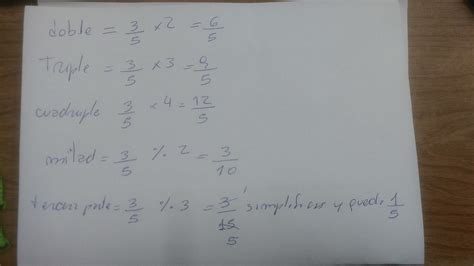 doble = 3/5 x 2 = 6/5
Triple = 3/5 x 3 = 9/5
cuadruple 3/5 x 4 = 12/5
mitad = 3/5 % 2 = 3/10
tercera parte = 3/5 % 3 = 3/15 simplificas y queda 1/5
5